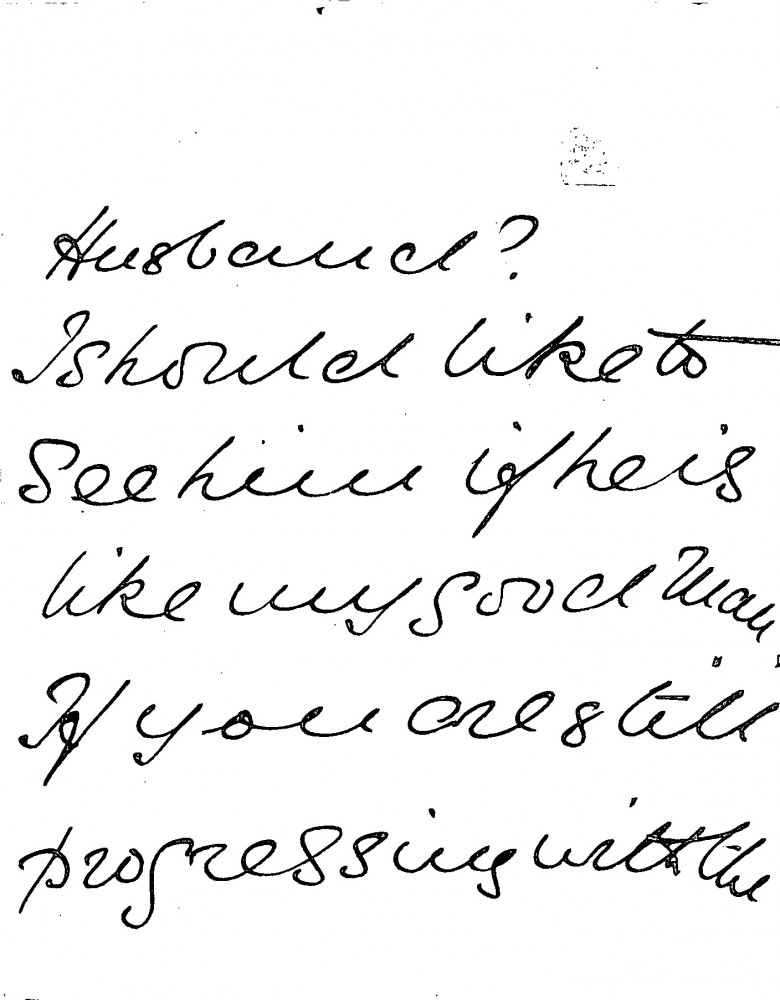 Husband?
I should like to
See him if he is
like my good Man
If you are still
progressing with the